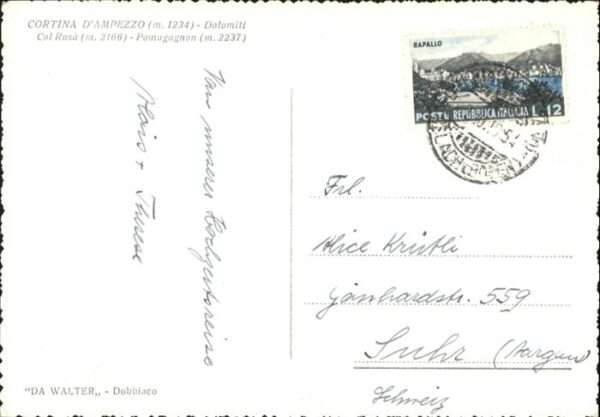 CORTINA D'AMPEZZO (m. 1234) - Dolomiti
Col Rosà (m. 2166) - Pomagagnon (m. 2237)
Von unserer Hochzeitsreise
Alois + Therese
RAPALLO
POSTE REPUBBLICA ITALIANA L. 12
Frl.
Alice Kristli
559
Suhr (Aargau)
Schweiz
"DA WALTER„ - Dobbiaco